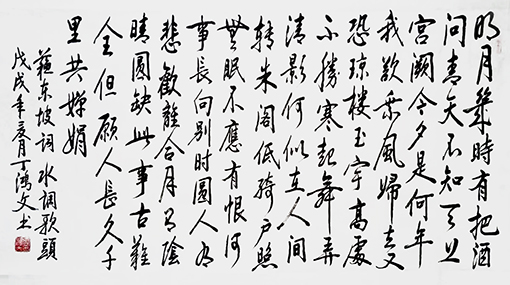 明月幾時有把酒
问青天不知天上
宫闕今夕是何年
我欲乘風歸去又
恐瓊楼玉宇高處
不勝寒起舞弄
清影何似在人间
转朱阁低绮户照
無眠不應有恨何
事長向别时圆人有
悲歡離合月有陰
晴圆缺此事古難
全但願人長久千
里共嬋娟
蘇东坡词水调歌頭
戊戌年夏月丁鸿文书